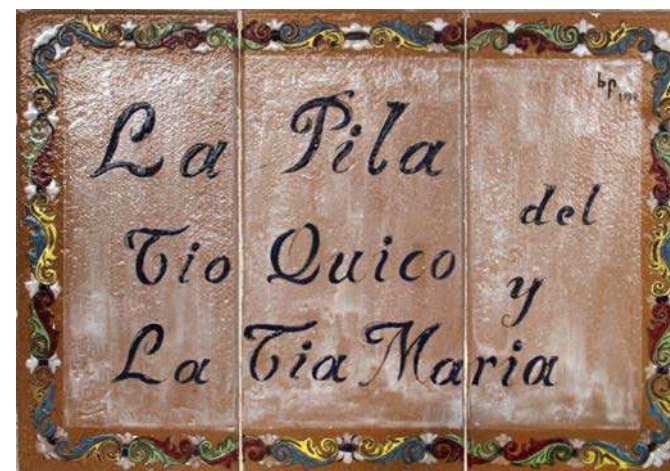 bp
La Pila
del
Tio Quico y
La Tia Maria